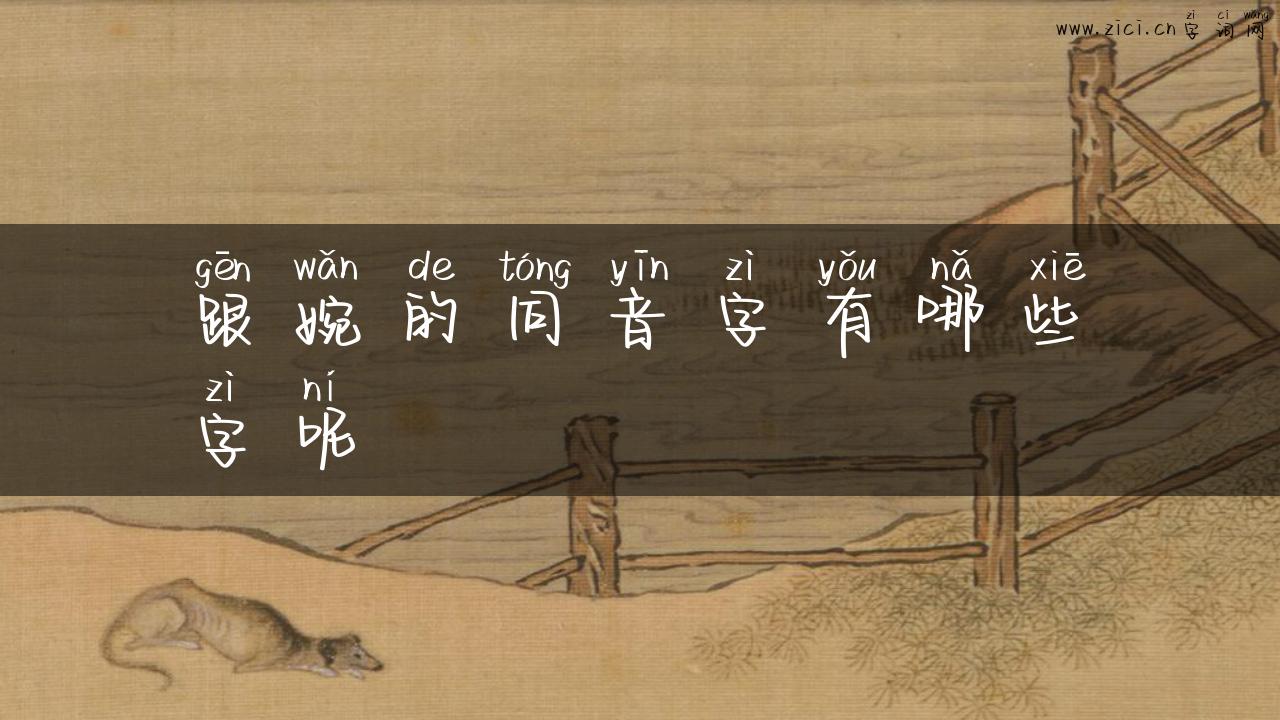 zi ci wang
www.zici.cn字词网
gēn wǎn de tóng yīn zì yǒu nǎ xiē
跟婉的同音字有哪些
zì ní
字呢